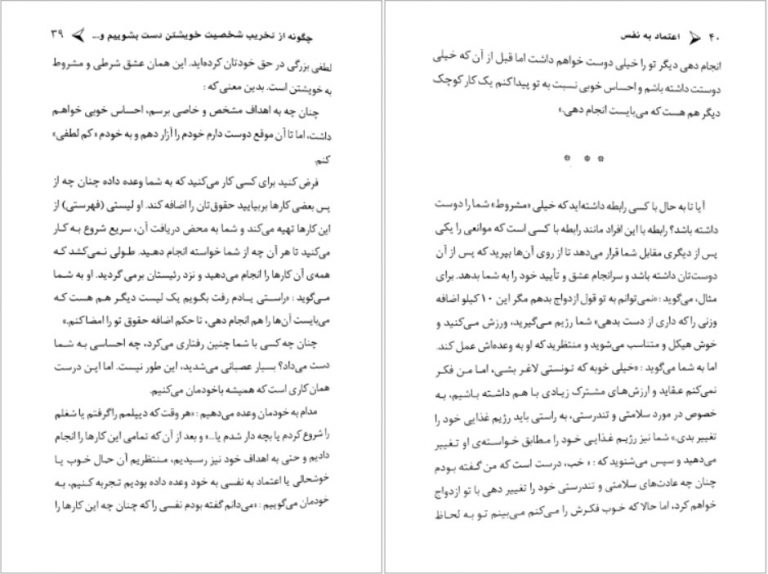 چگونه از تخریب شخصیت خویشتن دست بشوییم و... ۳۹
لطفی بزرگی در حق خودتان کرده‌اید. این همان عشق شرطی و مشروط
به خویشتن است. بدین معنی که :
چنان چه به اهداف مشخص و خاصی برسم، احساس خوبی خواهم
داشت، اما تا آن موقع دوست دارم خودم را آزار دهم و به خودم «کم لطفی»
کنم.
فرض کنید برای کسی کار می‌کنید که به شما وعده داده چنان چه از
پس بعضی کارها بربیایید حقوق‌تان را اضافه کند. او لیستی (فهرستی) از
این کارها تهیه می‌کند و شما به محض دریافت آن، سریع شروع به کار
می‌کنید تا هر آن چه از شما خواسته انجام دهید. طولی نمی‌کشد که
همه‌ی آن کارها را انجام می‌دهید و نزد رئیستان برمی گردید. او به شما
می‌گوید : «راستی یادم رفت بگویم یک لیست دیگر هم هست که
می‌بایست آن‌ها را هم انجام دهی، تا حکم اضافه حقوق تو را امضا کنم.»
چنان چه کسی با شما چنین رفتاری می‌کرد، چه احساسی به شما
دست می‌داد؟ بسیار عصبانی می‌شدید، این طور نیست. اما این درست
همان کاری است که همیشه باخودمان می‌کنیم.
مدام به خودمان وعده می‌دهیم : «هر وقت که دیپلمم را گرفتم یا شغلم
را شروع کردم یا بچه دار شدم یا...» و بعد از آن که تمامی این کارها را انجام
دادیم و حتی به اهداف خود نیز رسیدیم، منتظریم آن حال خوب یا
خوشحالی یا اعتماد به نفسی به خود وعده داده بودیم تجربه کنیم، به
خودمان می‌گوییم : «می‌دانم گفته بودم نفسی را که چنان چه این کارها را
۴۰ اعتماد به نفس
انجام دهی دیگر تو را خیلی دوست خواهم داشت اما قبل از آن که خیلی
دوستت داشته باشم و احساس خوبی نسبت به تو پیدا کنم یک کار کوچک
دیگر هم هست که می‌بایست انجام دهی.»
* * *
آیا تا به حال با کسی رابطه داشته‌اید که خیلی «مشروط» شما را دوست
داشته باشد؟ رابطه با این افراد مانند رابطه با کسی است که موانعی را یکی
پس از دیگری مقابل شما قرار می‌دهد تا از روی آن‌ها بپرید که پس از آن
دوست‌تان داشته باشد و سرانجام عشق و تأیید خود را به شما بدهد. برای
مثال، می‌گوید : «نمی‌توانم به تو قول ازدواج بدهم مگر این ۱۰ کیلو اضافه
وزنی را که داری از دست بدهی» شما رژیم می‌گیرید، ورزش می‌کنید و
خوش هیکل و متناسب می‌شوید و منتظرید که او به وعده‌اش عمل کند.
اما به شما می‌گوید : «خیلی خوبه که تونستی لاغر بشی، اما من فکر
نمی‌کنم عقاید و ارزش‌های مشترک زیادی با هم داشته باشیم، به
خصوص در مورد سلامتی و تندرستی، به راستی باید رژیم غذایی خود را
تغییر بدی.» شما نیز رژیم غذایی خود را مطابق خواسته‌ی او تغییر
می‌دهید و سپس می‌شنوید که : « خب، درست است که من گفته بودم
چنان چه عادت‌های سلامتی و تندرستی خود را تغییر دهی با تو ازدواج
خواهم کرد، اما حالا که خوب فکرش را می‌کنم می‌بینم تو به لحاظ